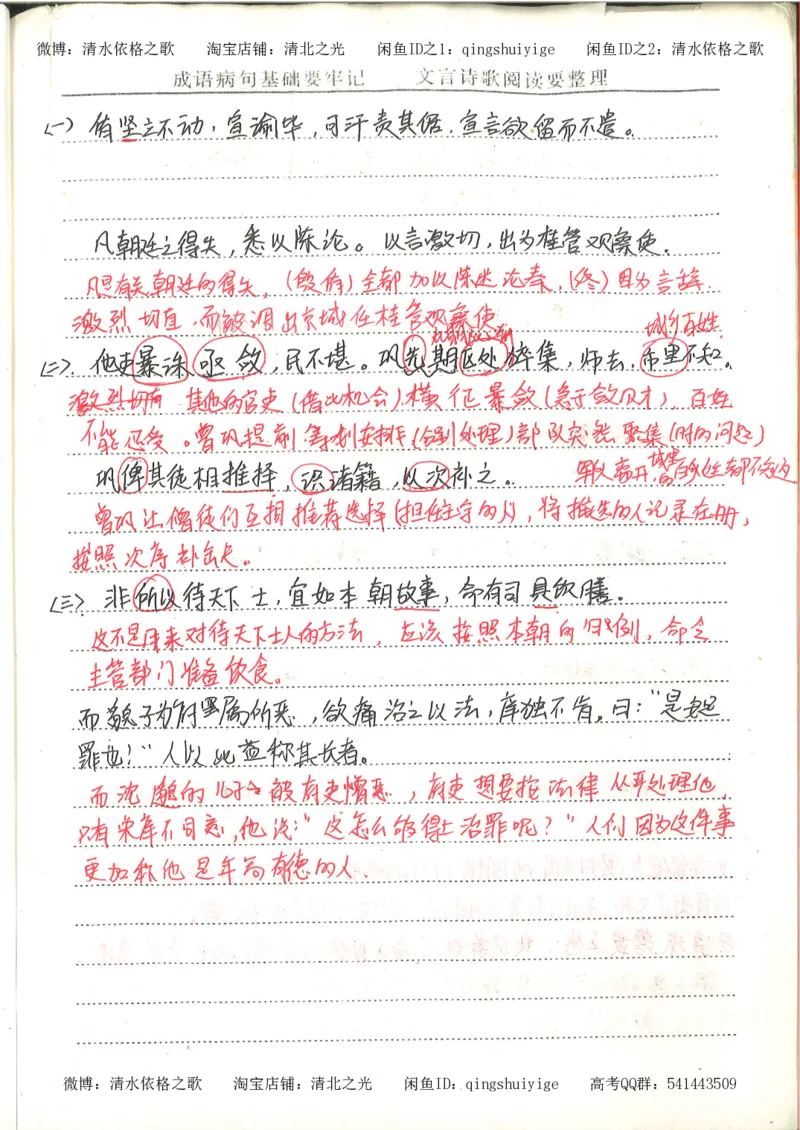 微博：清水依格之歌 淘宝店铺：清北之光 闲鱼ID之1：qingshuiyige 闲鱼ID之2：清水依格之歌
成语病句基础要牢记 文言诗歌阅读要整理
(一) 侑坚立不动，宣谕毕，可汗责其倨，宣言欲留而不遣。
凡朝廷之得失，悉以陈论。以言激切，出为桂管观察使。
凡是有关朝廷的得失，(殷侑)全部加以陈述论奏，(终)因为言辞
激烈切直，而被调出京城任桂管观察使
城乡百姓
(二) 他吏暴诛亟敛，民不堪。巩先期区处猝集，师去，市里不知。
激烈切直 其他的官吏(借此机会)横征暴敛(急于敛财)，百姓
不能忍受。曾巩提前筹划安排(分别处理)部队突然聚集(时的问题)
巩俾其徒相推择，识诸籍，以次补之。
军队离开，城里的百姓都不知道
曾巩让僧徒们互相推荐选择(担任主守的人)，将推选的人记录在册，
按照次序补缺。
(三) 非所以待天下士，宜如本朝故事，命有司具饮膳。
这不是用来对待天下士人的方法，应该按照本朝的旧例，命令
主管部门准备饮食。
而魏子为府官属所恶，欲痛治之以法，庠独不肯，曰："是安足
罪也！"人以此益称其长者。
而沈邈的儿子被有吏憎恶，有吏想要按法律从严处理他，
只有宋庠不同意，他说："这怎么够得上治罪呢？"人们因为这件事
更加称他是年高有德的人.
微博：清水依格之歌 淘宝店铺：清北之光 闲鱼ID：qingshuiyige 高考QQ群：541443509